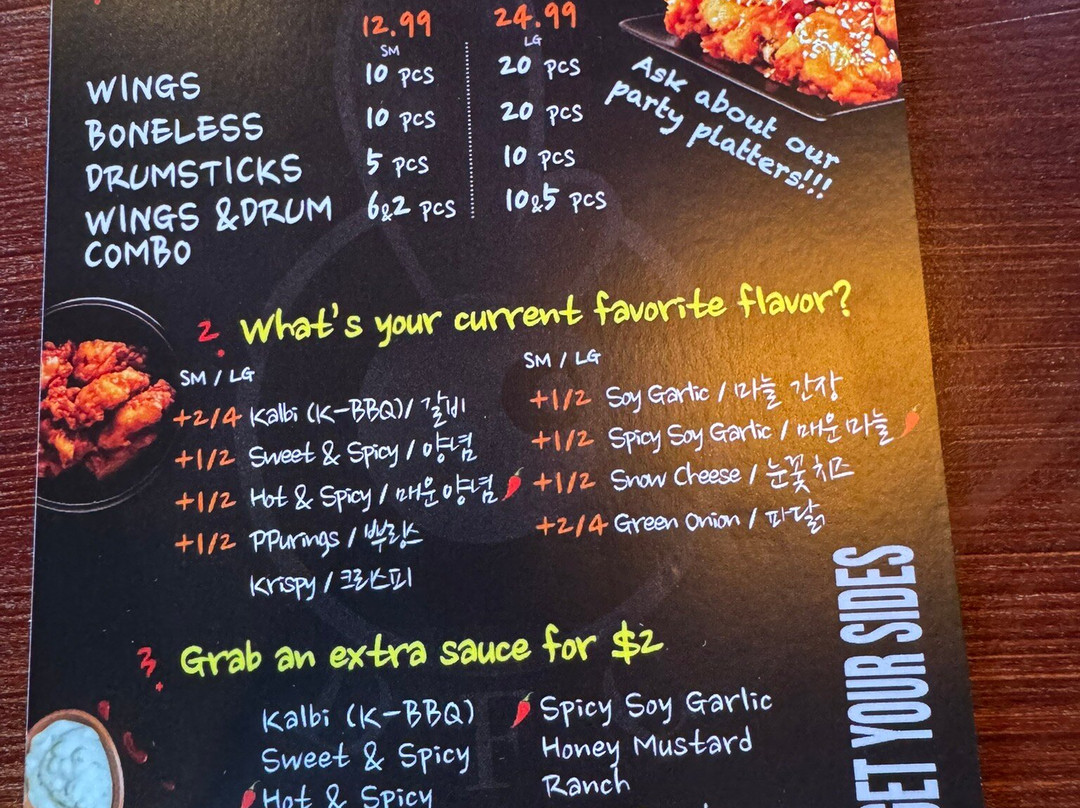 12.99 24.99
SM LG
WINGS 10 PCS 20 PCS
BONELESS 10 PCS 20 PCS
DRUMSTICKS 5 PCS 10 PCS
WINGS &DRUM 6&2 PCS 10&5 PCS
COMBO
Ask about our
party platters!!!
2. What's your current favorite flavor?
SM / LG
+2/4 Kalbi (K-BBQ)/ 갈비
+1/2 Sweet & Spicy / 양념
+1/2 Hot & Spicy / 매운양념
+1/2 PPurings / 뿌링스
Krispy / 크리스피
SM / LG
+1/2 Soy Garlic / 마늘 간장
+1/2 Spicy Soy Garlic / 매운마늘
+1/2 Snow Cheese / 눈꽃치즈
+2/4 Green Onion / 파닭
3. Grab an extra sauce for $2
Kalbi (K-BBQ)
Sweet & Spicy
Hot & Spicy
Spicy Soy Garlic
Honey Mustard
Ranch
GET YOUR SIDES